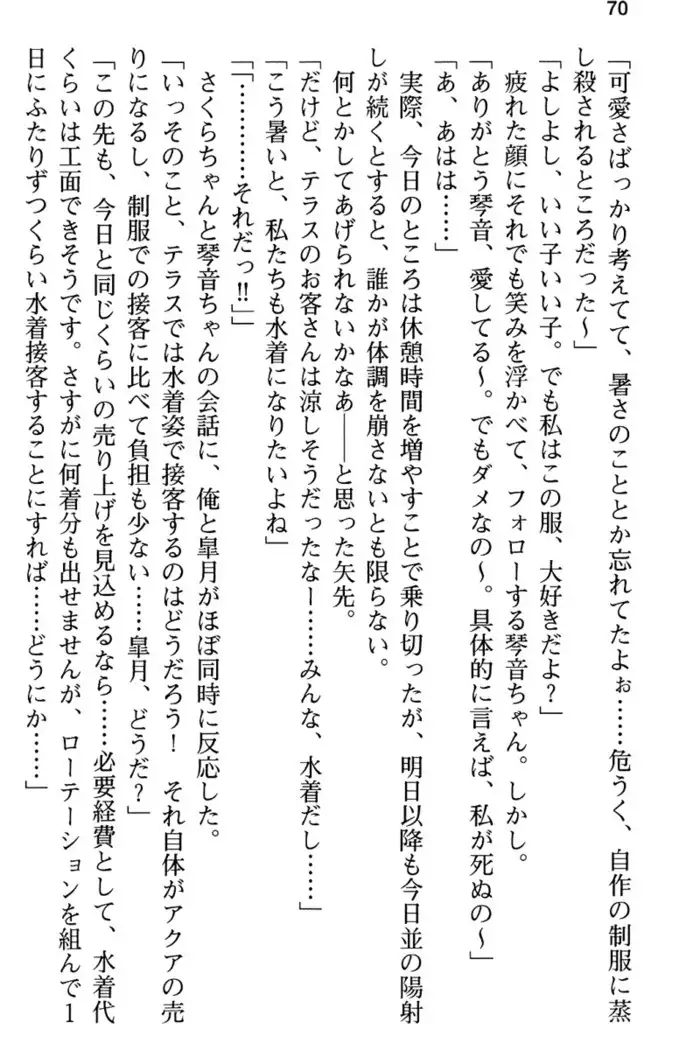 70
「可愛さばっかり考えてて、暑さのこととか忘れてたよぉ……危うく、自作の制服に蒸
し殺されるところだった〜」
「よしよし、いい子いい子。でも私はこの服、大好きだよ?」
疲れた顔にそれでも笑みを浮かべて、フォローする琴音ちゃん。しかし。
「ありがとう琴音、愛してる〜。でもダメなの〜。具体的に言えば、私が死ぬの〜」
「あ、あはは……」
実際、今日のところは休憩時間を増やすことで乗り切ったが、明日以降も今日並の陽射
しが続くとすると、誰かが体調を崩さないとも限らない。
何とかしてあげられないかなあ――と思った矢先。
「だけど、テラスのお客さんは涼しそうだったなー……みんな、水着だし……」
「こう暑いと、私たちも水着になりたいよね」
「「…………それだっ!!」」
さくらちゃんと琴音ちゃんの会話に、俺と皐月がほぼ同時に反応した。
「いっそのこと、テラスでは水着姿で接客するのはどうだろう! それ自体がアクアの売
りになるし、制服での接客に比べて負担も少ない……皐月、どうだ?」
「この先も、今日と同じくらいの売り上げを見込めるなら……必要経費として、水着代
くらいは工面できそうです。さすがに何着分も出せませんが、ローテーションを組んで1
日にふたりずつくらい水着接客することにすれば……どうにか……」